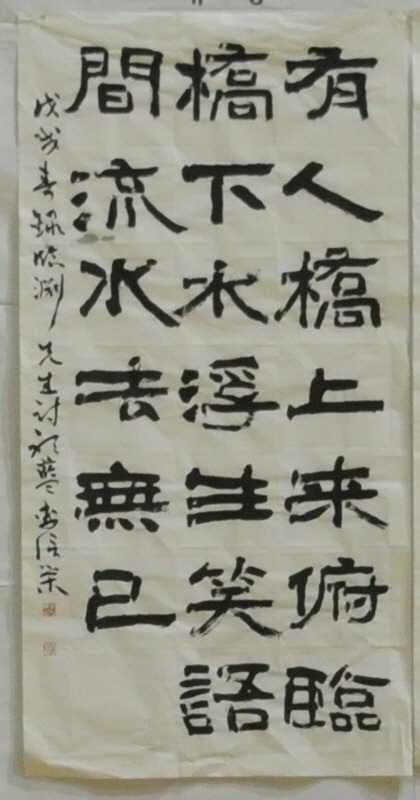 有人橋上来俯臨
橋下水浮生笑語
間流水去無已
戊戌春録臨淵先生詩